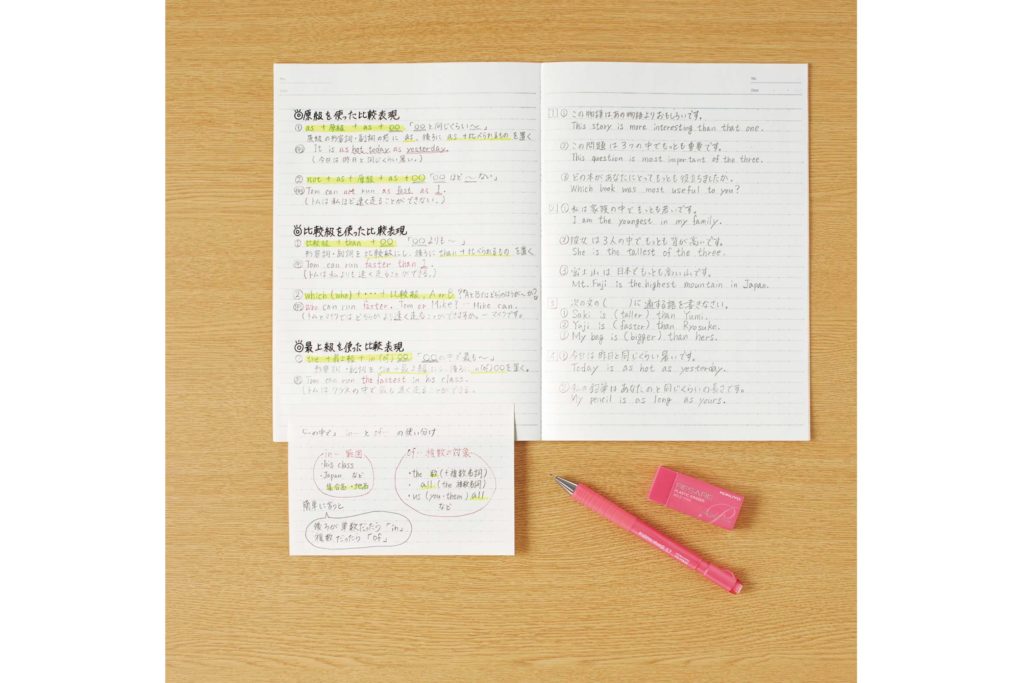 No.
Date
◎原級を使った比較表現
① as + 原級 + as + ○○ 「○○と同じくらい〜」
原級の形容詞・副詞の前に as、後ろに as + 比べられるもの を置く
例 It is as hot today as yesterday.
(今日は昨日と同じくらい暑い。)
② not + as + 原級 + as + ○○ 「○○ほど〜ない」
例 Tom can not run as fast as I.
(トムは私ほど速く走ることができない。)
◎比較級を使った比較表現
① 比較級 + than + ○○ 「○○よりも〜」
形容詞・副詞を比較級にし、後ろに than + 比べられるもの を置く
例 Tom can run faster than I.
(トムは私よりも速く走ることができる。)
② which (who) + ・・・ + 比較級, A or B?
例 Who can run faster, Tom or Mike? — Mike can.
(トムとマイクではどちらがより速く走ることができますか。— マイクです。)
◎最上級を使った比較表現
① the + 最上級 + in (of) ○○ 「○○の中で最も〜」
形容詞・副詞を the + 最上級 にし、後ろに in(of) ○○ を置く。
例 Tom can run the fastest in his class.
(トムはクラスの中で最も速く走ることができる。)
「〜の中で」 in〜 と of〜 の使い分け
・in〜 範囲
・his class
・Japan など
集合名・地名
of〜 複数の対象
・the 数 (+ 複数名詞)
・all (the 複数名詞)
・us (you・them) all
など
簡単に言うと
後ろが単数だったら「in」
複数だったら「of」
No.
Date
1 ① この物語はあの物語よりおもしろいです。
This story is more interesting than that one.
② この問題は3つの中でもっとも重要です。
This question is most important of the three.
③ どの本があなたにとってもっとも役立ちましたか。
Which book was most useful to you?
2 ① 私は家族の中でもっとも若いです。
I am the youngest in my family.
② 彼女は3人の中でもっとも背が高いです。
She is the tallest of the three.
③ 富士山は日本でもっとも高い山です。
Mt. Fuji is the highest mountain in Japan.
3 次の文の( )に適する語を書きなさい。
① Saki is (taller) than Yumi.
② Yuji is (faster) than Ryosuke.
③ My bag is (bigger) than hers.
4 ① 今日は昨日と同じくらい暑いです。
Today is as hot as yesterday.
② 私の鉛筆はあなたのと同じくらいの長さです。
My pencil is as long as yours.
RESARE
PLASTIC ERASER
KOKUYO